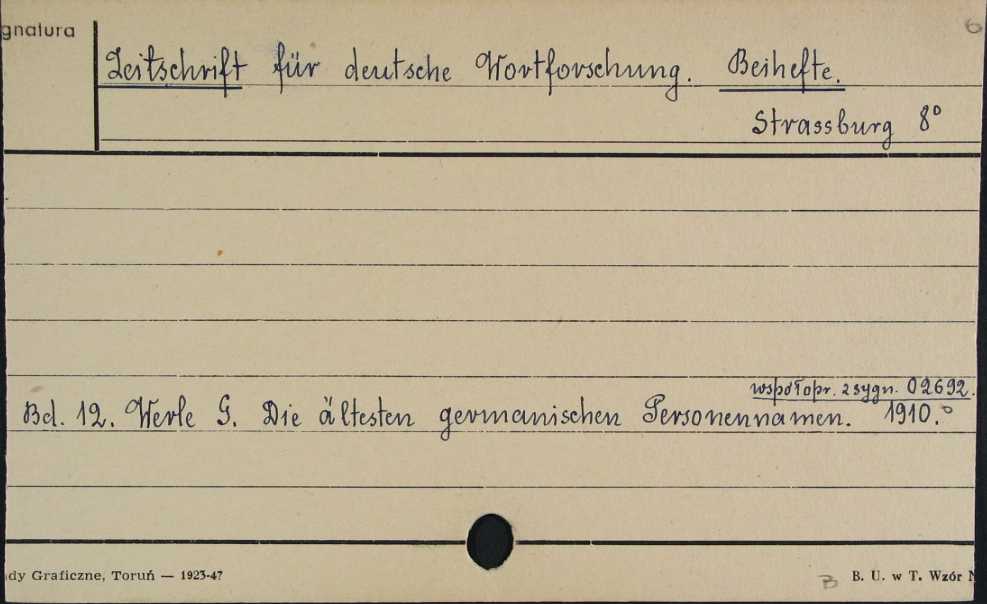 gnatura
6
Zeitschrift für deutsche Wortforschung. Beihefte.
Strassburg 8°
współopr. z sygn. 02692.
Bd. 12. Werle G. Die ältesten germanischen Personennamen. 1910.°
dy Graficzne, Toruń — 1923-47
B
B. U. w T. Wzór N